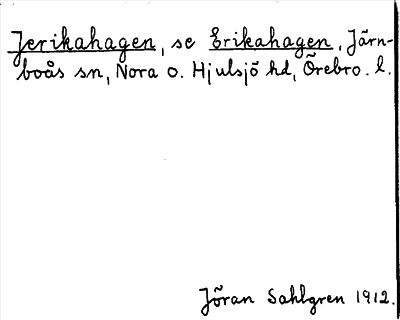 Jerikahagen, se Erikahagen, Järn-
boås sn, Nora o. Hjulsjö hd, Örebro. l.
Jöran Sahlgren 1912.